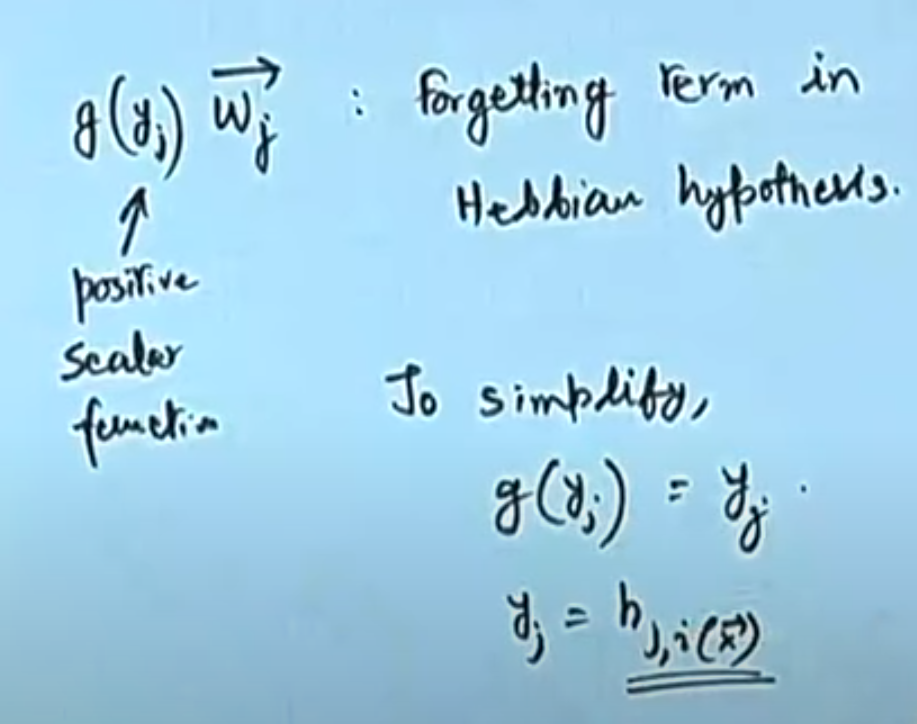 g(y_j) \vec{w_j} : forgetting term in
Hebbian hypothesis.
↑
positive
scalar
function
To simplify,
g(y_j) = y_j .
y_j = h_{j,i(\vec{x})}